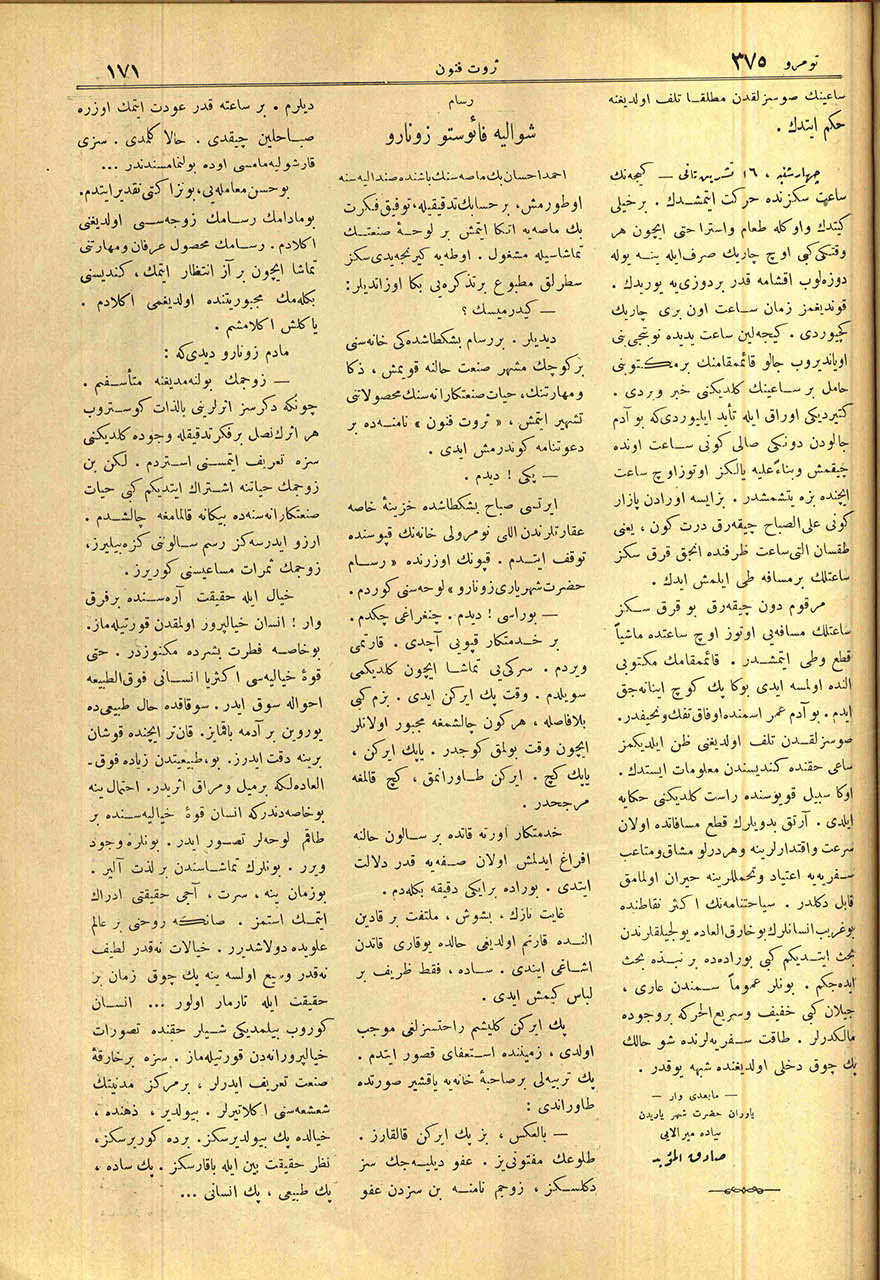 نومرو ٣٧٥
ثروت فنون
١٧١
ساعينك صوسزلقدن مطلقا تلف اولديغنه
حكم ايتدك .
چهارشنبه ، ١٦ تشرين ثانى — كيجه‌نك
ساعت سكزنده حركت ايتمشدك . برخيلى
كيتدك واوكله طعام واستراحتى ايچون هر
وقتكى كبى اوچ چاريك صرف ايله ينه يوله
دوزه‌لوب اقشامه قدر بردوزى‌يه يوريدك .
قونديغمز زمان ساعت اون برى چاريك
كچيوردى . كيجه‌لين ساعت يديده نوبتجى بنى
اوياندیروب جالو قائممقامنك برمكتوبنى
حامل بر ساعينك كلديكنى خبر ويردى .
كتيرديكى اوراق ايله تأيد ايليوردى‌كه بو آدم
جالودن دونكى صالى كونى ساعت اونده
چيقمش وبناءً عليه يالكز اوتوزاوچ ساعت
ايچنده بزه يتشمشدر . بزايسه اورادن پازار
كونى على‌الصباح چيقه‌رق درت كون ، يعنى
طقسان التى ساعت ظرفنده انجق قرق سكز
ساعتلك برمسافه طى ايلمش ايدك .
مرقوم دون چيقه‌رق بو قرق سكز
ساعتلك مسافه‌يى اوتوز اوچ ساعتده ماشياً
قطع وطى ايتمشدر . قائممقامك مكتوبى
النده اولمسه ايدى بوكا پك كوچ اينانه‌جق
ايدم . بو آدم عمر اسمنده اوفاق تفك ونحيفدر .
صوسزلقدن تلف اولديغنى ظن ايلديكمز
ساعى حقنده كنديسندن معلومات ايستدك .
اوكا سبيل قويوسنده راست كلديكنى حكايه
ايلدى . آرتق بدويلرك قطع مسافاتده اولان
سرعت واقتدارلرينه وهردرلو مشاق ومتاعب
سفريه‌يه اعتياد وتحمللرينه حيران اولمامق
قابل دكلدر . سياحتنامه‌نك اكثر نقاطنده
بوغريب انسانلرك بوخارق العاده يولجيلقلرندن
بحث ايتديكم كبى بوراده‌ده بر نبذه بحث
ايده‌جكم . بونلر عموماً سمندن عارى ،
جيلان كبى خفيف وسريع الحركه بروجوده
مالكدرلر . طاقت سفريه‌لرنده شو حالك
پك چوق دخلى اولديغنده شبهه يوقدر .
— مابعدى وار —
ياوران حضرت شهر ياريدن
پياده ميرالايى
صادق المؤيد
رسام
شواليه فائوستو زونارو
احمد احسان بك ماصه‌سنك باشنده صنداليه‌سنه
اوطورمش ، برحسابك تدقيقيله ، توفيق فكرت
بك ماصه‌يه اتكا ايتمش بر لوحهٔ صنعتك
تماشاسيله مشغول . اوطه‌يه كيرنجه يدى سكز
سطرلق مطبوع برتذكره‌يى بكا اوزانديلر :
— كيدرميسك ؟
ديديلر . بررسام بشكطاشده‌كى خانه‌سنى
بركوچك مشهر صنعت حالنه قويمش ، ذكا
ومهارتنك ، حيات صنعتكارانه‌سنك محصولاتنى
تشهير ايتمش ، « ثروت فنون » نامنه‌ده بر
دعوتنامه كوندرمش ايدى .
— پكى ! ديدم .
ايرتسى صباح بشكطاشده خزينهٔ خاصه
عقارتلرندن اللى نومرولى خانه‌نك قپوسنده
توقف ايتدم . قپونك اوزرنده « رسام
حضرت شهريارى زونارو » لوحه‌سنى كوردم .
— بوراسى ! ديدم . چنغراغى چكدم .
بر خدمتكار قپويى آچدى . قارتمى
ويردم . سركى‌يى تماشا ايچون كلديكمى
سويلدم . وقت پك ايركن ايدى . بزم كبى
بلافاصله ، هركون چالشمغه مجبور اولانلر
ايچون وقت بولمق كوجدر . ياپك ايركن ،
ياپك كچ . ايركن طاورانمق ، كچ قالمغه
مرجحدر .
خدمتكار اورته قاتده بر سالون حالنه
افراغ ايدلمش اولان صفه‌يه قدر دلالت
ايتدى . بوراده برايكى دقيقه بكله‌دم .
غايت نازك ، بشوش ، ملتفت بر قادين
النده قارتم اولديغى حالده يوقارى قاتدن
اشاغى ايندى . ساده ، فقط ظريف بر
لباس كيمش ايدى .
پك ايركن كليشم راحتسزلغى موجب
اولدى ، زميننده استعفاى قصور ايتدم .
پك تربيه‌لى برصاحبهٔ خانه‌يه ياقشير صورتده
طاوراندى :
— بالعكس ، بز پك ايركن قالقارز .
طلوعك مفتونى‌يز . عفو ديليه‌جك سز
دكلسكز ، زوجم نامنه بن سزدن عفو
ديلرم . بر ساعته قدر عودت ايتمك اوزره
صباحلين چيقدى . حالا كلمدى . سزى
قارشوليه‌مامسى اوده بولنمامسندندر ...
بوحسن معامله‌يى ، بونزاكتى تقدير ايتدم .
بومادامك رسامك زوجه‌سى اولديغنى
اكلادم . رسامك محصول عرفان ومهارتنى
تماشا ايچون برآز انتظار ايتمك ، كنديسنى
بكله‌مك مجبوريتنده اولديغمى اكلادم .
ياكلش اكلامشم .
مادم زونارو ديدى‌كه :
— زوجمك بولنه‌مديغنه متأسفم .
چونكه دكرسز اثرلرينى بالذات كوستروب
هر اثرك نصل برفكر تدقيقله وجوده كلديكنى
سزه تعريف ايتمسنى استردم . لكن بن
زوجمك حياتنه اشتراك ايتديكم كبى حيات
صنعتكارانه‌سنه‌ده بيكانه قالمامغه چالشدم .
ارزو ايدرسه‌كز رسم سالوننى كزه‌بيليرز ،
زوجمك ثمرات مساعيسنى كوريرز .
خيال ايله حقيقت آره‌سنده برفرق
وار ! انسان خيالپرور اولمقدن قورتيله‌ماز .
بوخاصه فطرت بشرده مكنوزدر . حتى
قوهٔ خياليه‌سى اكثريا انسانى فوق‌الطبيعه
احواله سوق ايدر . سوقاقده حال طبيعى‌ده
يوروين بر آدمه باقمايز . قان‌تر ايچنده قوشان
برينه دقت ايدرز . بو ، طبيعيتدن زياده فوق-
العاده‌لكه برميل ومراق اثريدر . احتمال ينه
بوخاصه‌دندركه انسان قوهٔ خياليه‌سنده بر
طاقم لوحه‌لر تصور ايدر . بونلره وجود
ويرر . بونلرك تماشاسندن بر لذت آلير .
بوزمان ينه ، سرت ، آجى حقيقتى ادراك
ايتمك استمز . صانكه روحنى بر عالم
علويده دولاشديرر . خيالات نه‌قدر لطيف
نه‌قدر وسيع اولسه ينه پك چوق زمان بر
حقيقت ايله تارمار اولور ... انسان
كوروب بيلمديكى شيلر حقنده تصورات
خيالپرورانه‌دن قورتيله‌ماز . سزه برخارقهٔ
صنعت تعريف ايدرلر ، برمركز مدنيتك
شعشعه‌سنى اكلاتيرلر . بيولدير ، ذهنده ،
خيالده پك بيولديرسكز . برده كوريرسكز ،
نظر حقيقت بين ايله باقارسكز . پك ساده ،
پك طبيعى ، پك انسانى ...